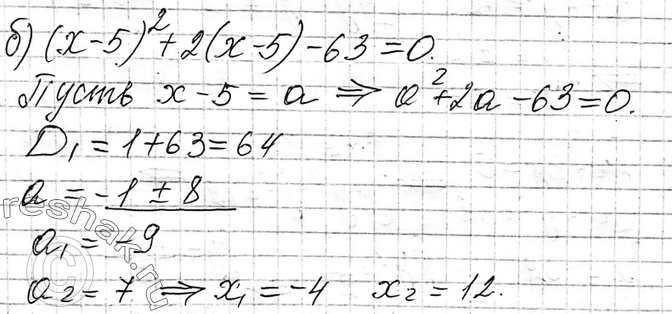 б) (x-5)² + 2(x-5) - 63 = 0.
Пусть x-5 = a ⇒ a² + 2a - 63 = 0.
D₁ = 1+63 = 64
a = -1 ± 8
a₁ = -9
a₂ = 7 ⇒ x₁ = -4 x₂ = 12.
reshak.ru